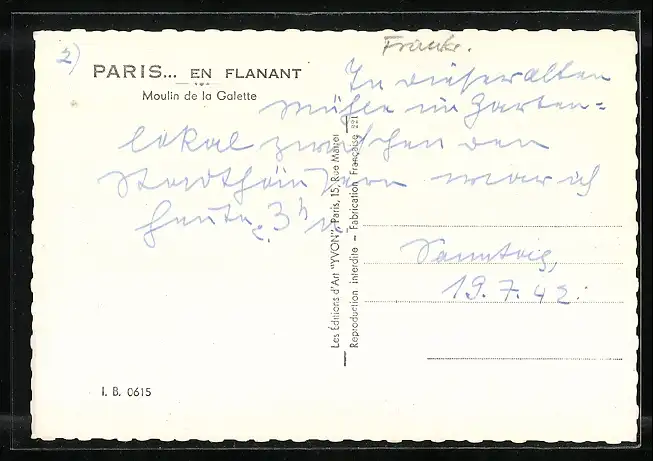 2)
Franke.
PARIS... EN FLANANT
Moulin de la Galette
In dieser alten
Mühle im Garten=
lokal zwischen den
Stadthäusern war ich
heute 3h
Sonntag,
19.7.42.
Les Éditions d'Art "YVON", Paris, 15, Rue Martel
Reproduction interdite - Fabrication Française 221
I. B. 0615